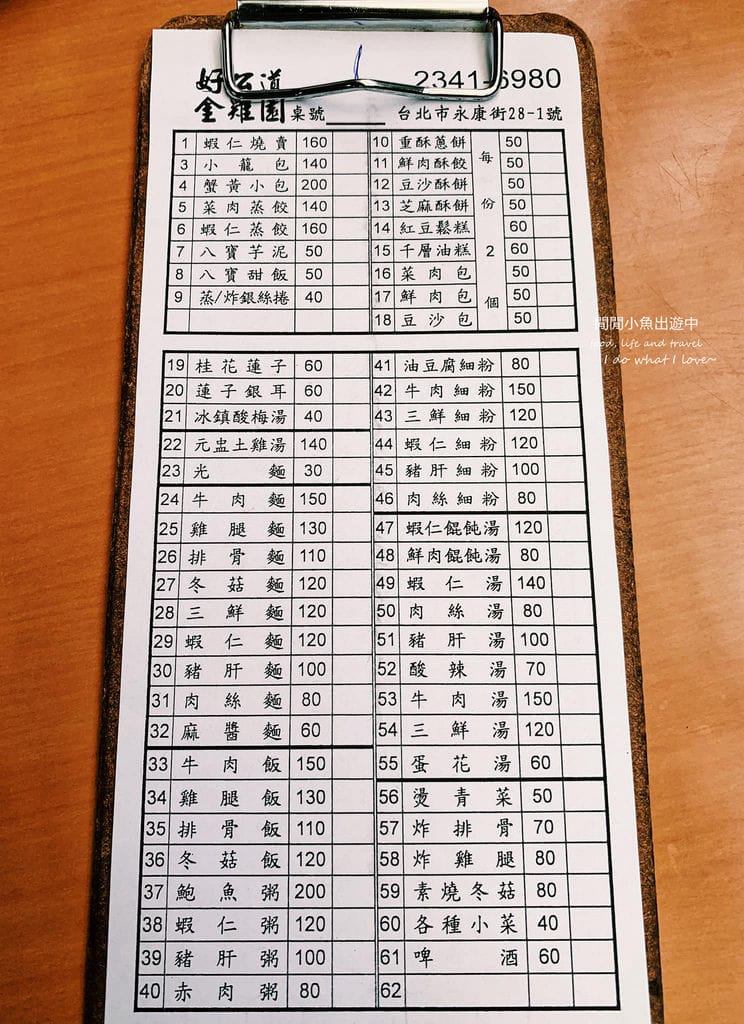 好公道 2341-6980
金雞園 桌號 台北市永康街28-1號
1 蝦仁燒賣 160
3 小籠包 140
4 蟹黃小包 200
5 菜肉蒸餃 140
6 蝦仁蒸餃 160
7 八寶芋泥 50
8 八寶甜飯 50
9 蒸/炸銀絲捲 40
每份2個
10 重酥蔥餅 50
11 鮮肉酥餃 50
12 豆沙酥餅 50
13 芝麻酥餅 50
14 紅豆鬆糕 60
15 千層油糕 60
16 菜肉包 50
17 鮮肉包 50
18 豆沙包 50
19 桂花蓮子 60
20 蓮子銀耳 60
21 冰鎮酸梅湯 40
22 元盅土雞湯 140
23 光麵 30
24 牛肉麵 150
25 雞腿麵 130
26 排骨麵 110
27 冬菇麵 120
28 三鮮麵 120
29 蝦仁麵 120
30 豬肝麵 100
31 肉絲麵 80
32 麻醬麵 60
33 牛肉飯 150
34 雞腿飯 130
35 排骨飯 110
36 冬菇飯 120
37 鮑魚粥 200
38 蝦仁粥 120
39 豬肝粥 100
40 赤肉粥 80
41 油豆腐細粉 80
42 牛肉細粉 150
43 三鮮細粉 120
44 蝦仁細粉 120
45 豬肝細粉 100
46 肉絲細粉 80
47 蝦仁餛飩湯 120
48 鮮肉餛飩湯 80
49 蝦仁湯 140
50 肉絲湯 80
51 豬肝湯 100
52 酸辣湯 70
53 牛肉湯 150
54 三鮮湯 120
55 蛋花湯 60
56 燙青菜 50
57 炸排骨 70
58 炸雞腿 80
59 素燒冬菇 80
60 各種小菜 40
61 啤酒 60
62
閒閒小魚出遊中
food, life and travel
I do what I love~